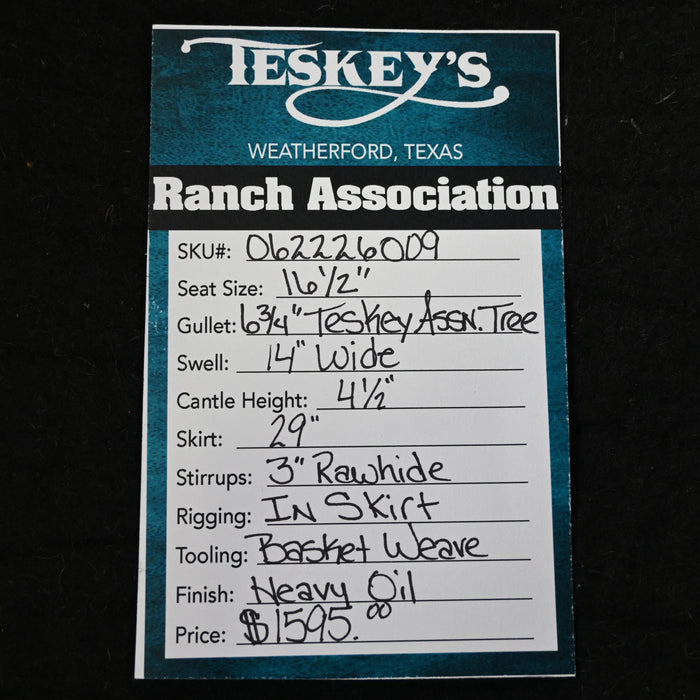 TESKEY'S
WEATHERFORD, TEXAS
Ranch Association
SKU#: 062226009
Seat Size: 16 1/2"
Gullet: 6 3/4" Teskey Assn. Tree
Swell: 14" Wide
Cantle Height: 4 1/2"
Skirt: 29"
Stirrups: 3" Rawhide
Rigging: In Skirt
Tooling: Basket Weave
Finish: Heavy Oil
Price: $1595.00